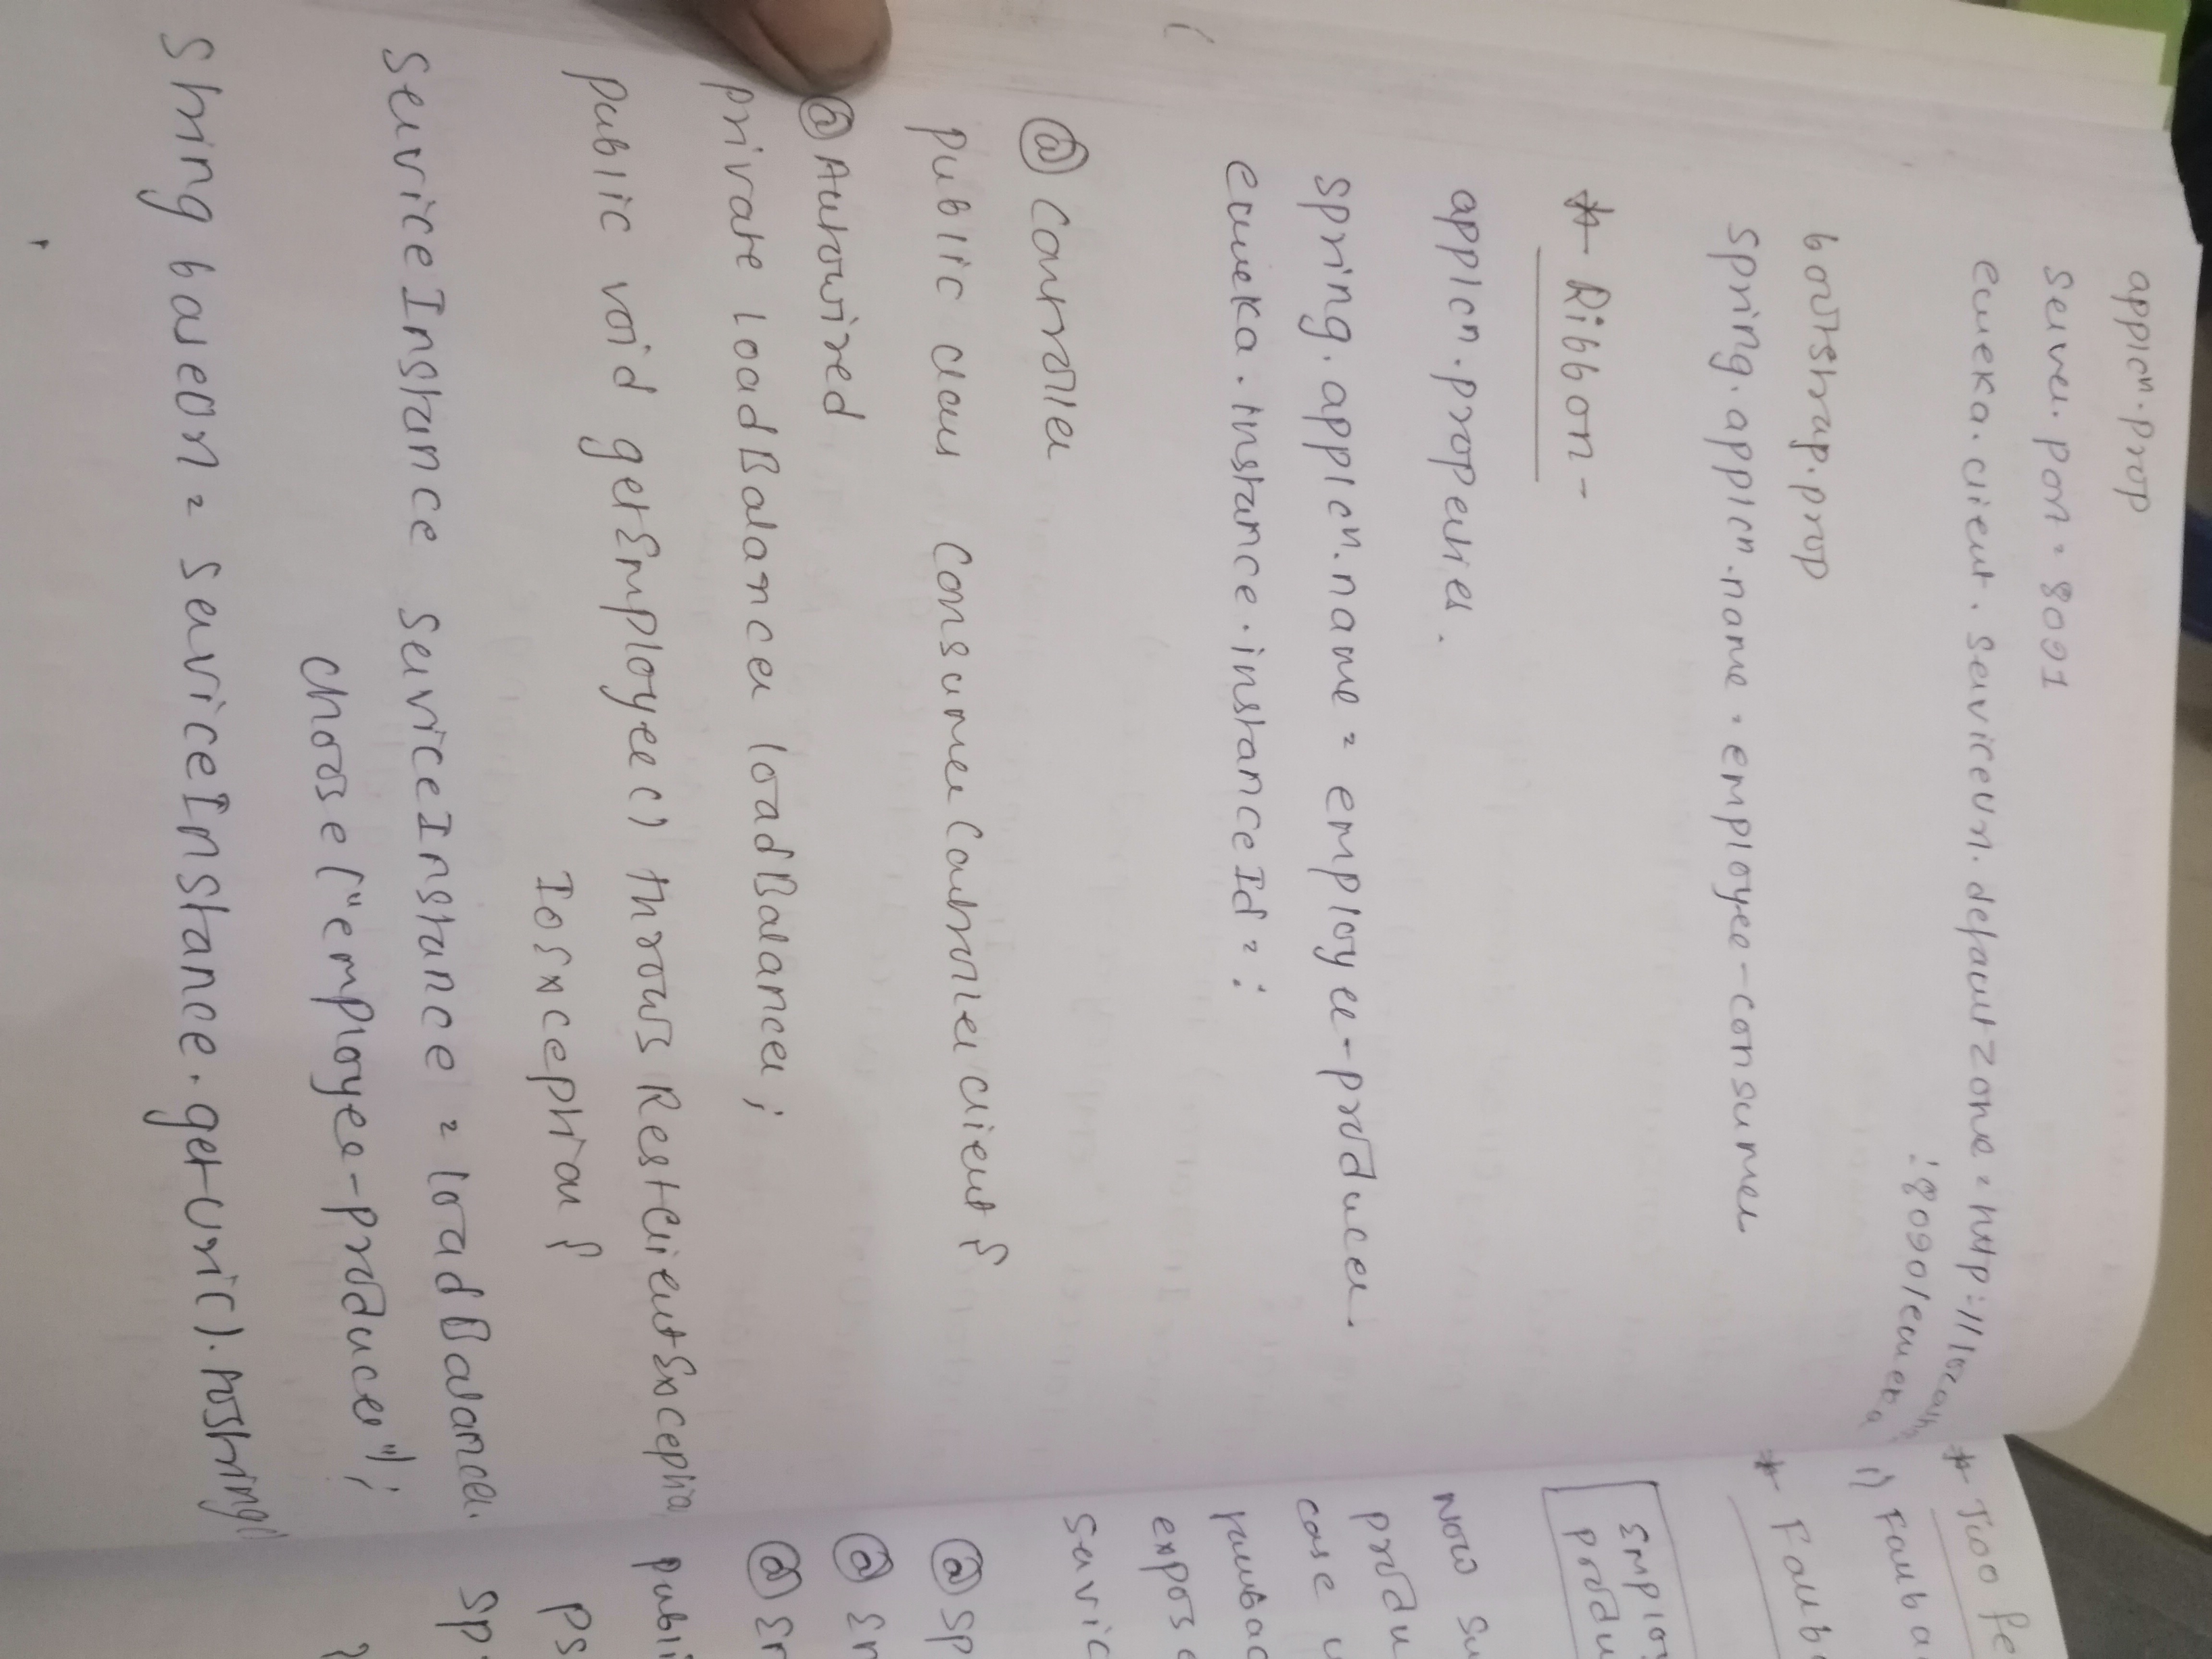 applcⁿ.prop
server.port = 8091
eureka.client.serviceurl.defaultzone = http://localh
:8090/eureka
bootstrap.prop
spring.applcⁿ.name = employee-consumer
* Ribbon -
applcⁿ.properties.
spring.applcⁿ.name = employee-producer.
eureka.instance.instanceId = :
@ Controller
public class ConsumerControllerClient {
@ Autowired
private loadBalancer loadBalancer;
public void getEmployee() throws RestClientExceptio
IoException {
ServiceInstance serviceInstance = loadBalancer.
choose("employee-producer");
String baseUrl = serviceInstance.getUri().toString()
* Two fe
i) Fallba
* Fallb
Employ
produ
Now su
produ
case u
fallbac
expose
servic
@ Sp
@ En
@ En
publi
ps
Sp
}